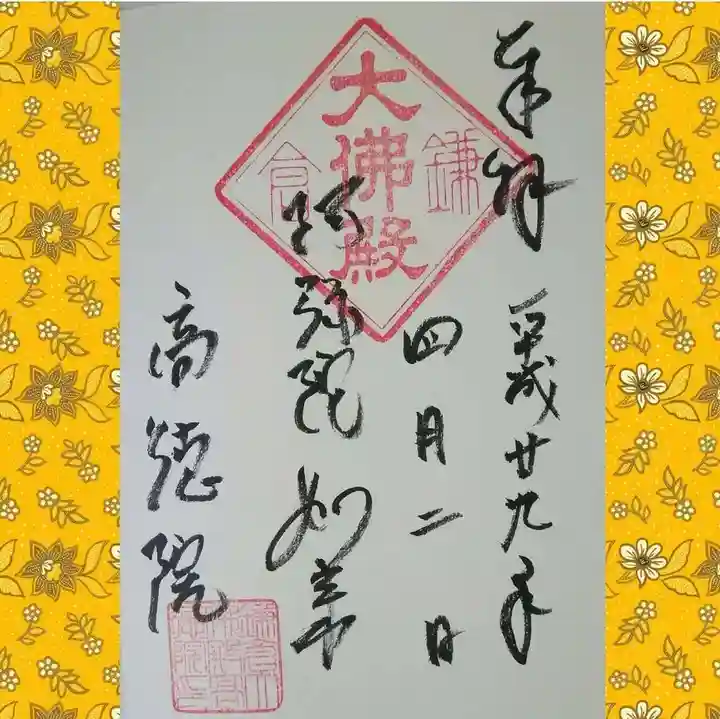 奉拝
平成廿九年
四月二日
鎌倉
大佛殿
阿弥陀如来
高徳院